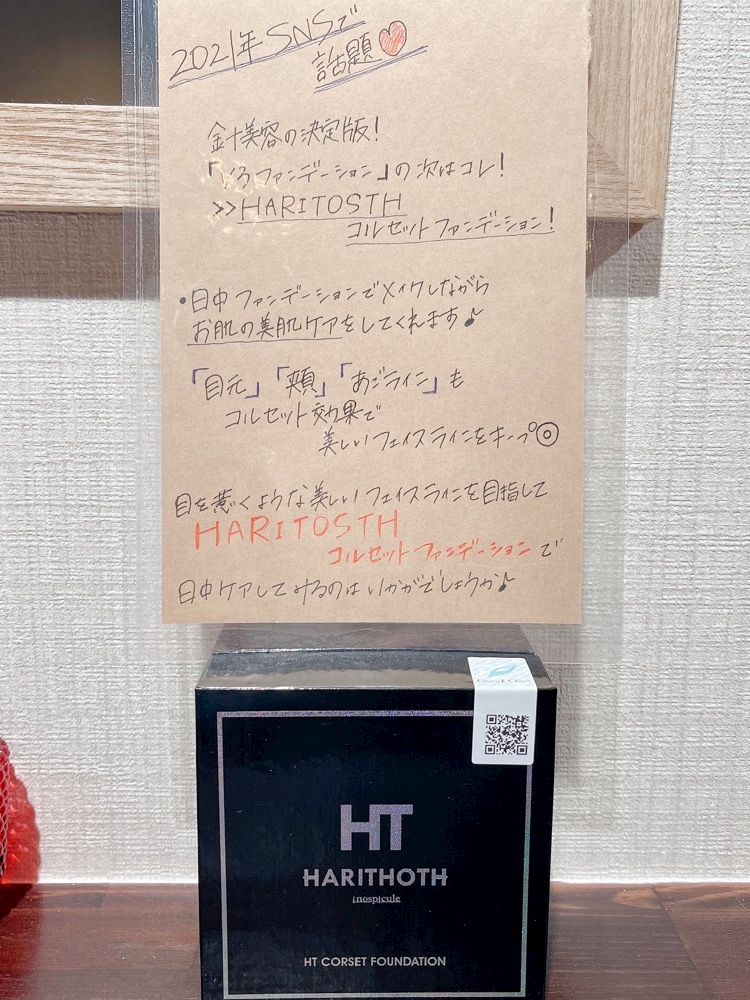 2021年 SNSで
話題
針美容の決定版!
「いろファンデーション」の次はコレ!
>>HARITOSTH
コルセット ファンデーション!
・日中 ファンデーションでメイクしながら
お肌の美肌ケアをしてくれます♪
「目元」「頬」「あごライン」も
コルセット効果で
美しいフェイスラインをキープ◎
目を惹くような美しいフェイスラインを目指して
HARITOSTH
コルセット ファンデーションで
日中ケアしてみるのはいかがでしょうか♪
HT
HARITHOTH
inospicule
HT CORSET FOUNDATION